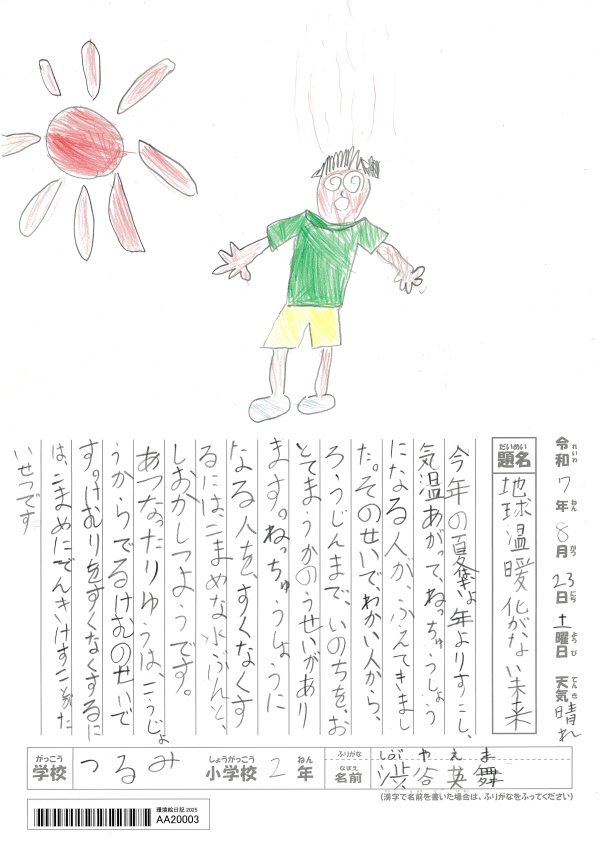 令和7年8月23日土曜日 天気晴れ
題名 地球温暖化がない未来
今年の夏は、年よりすこし、
気温あがって、ねっちゅうしょう
になる人が、ふえてきまし
た。そのせいで、わかい人から、
ろうじんまで、いのちを、お
とてまうかのうせいがあり
ます。ねっちゅうしょうに
なる人を、すくなくす
るには、こまめな水ぶんと、
しおかしつようです。
あつなったりゆうは、こうじょ
うからでるけむのせいで
す。けむりをすくなくするに
は、こまめにでんきけすことがた
いせつです
がっこう 学校 つるみ しょうがっこう 小学校 2 ねん 年
ふりがな しぶ や え ま
なまえ 名前 渋谷英舞
(漢字で名前を書いた場合は、ふりがなをふってください)
環境絵日記 2025
AA20003